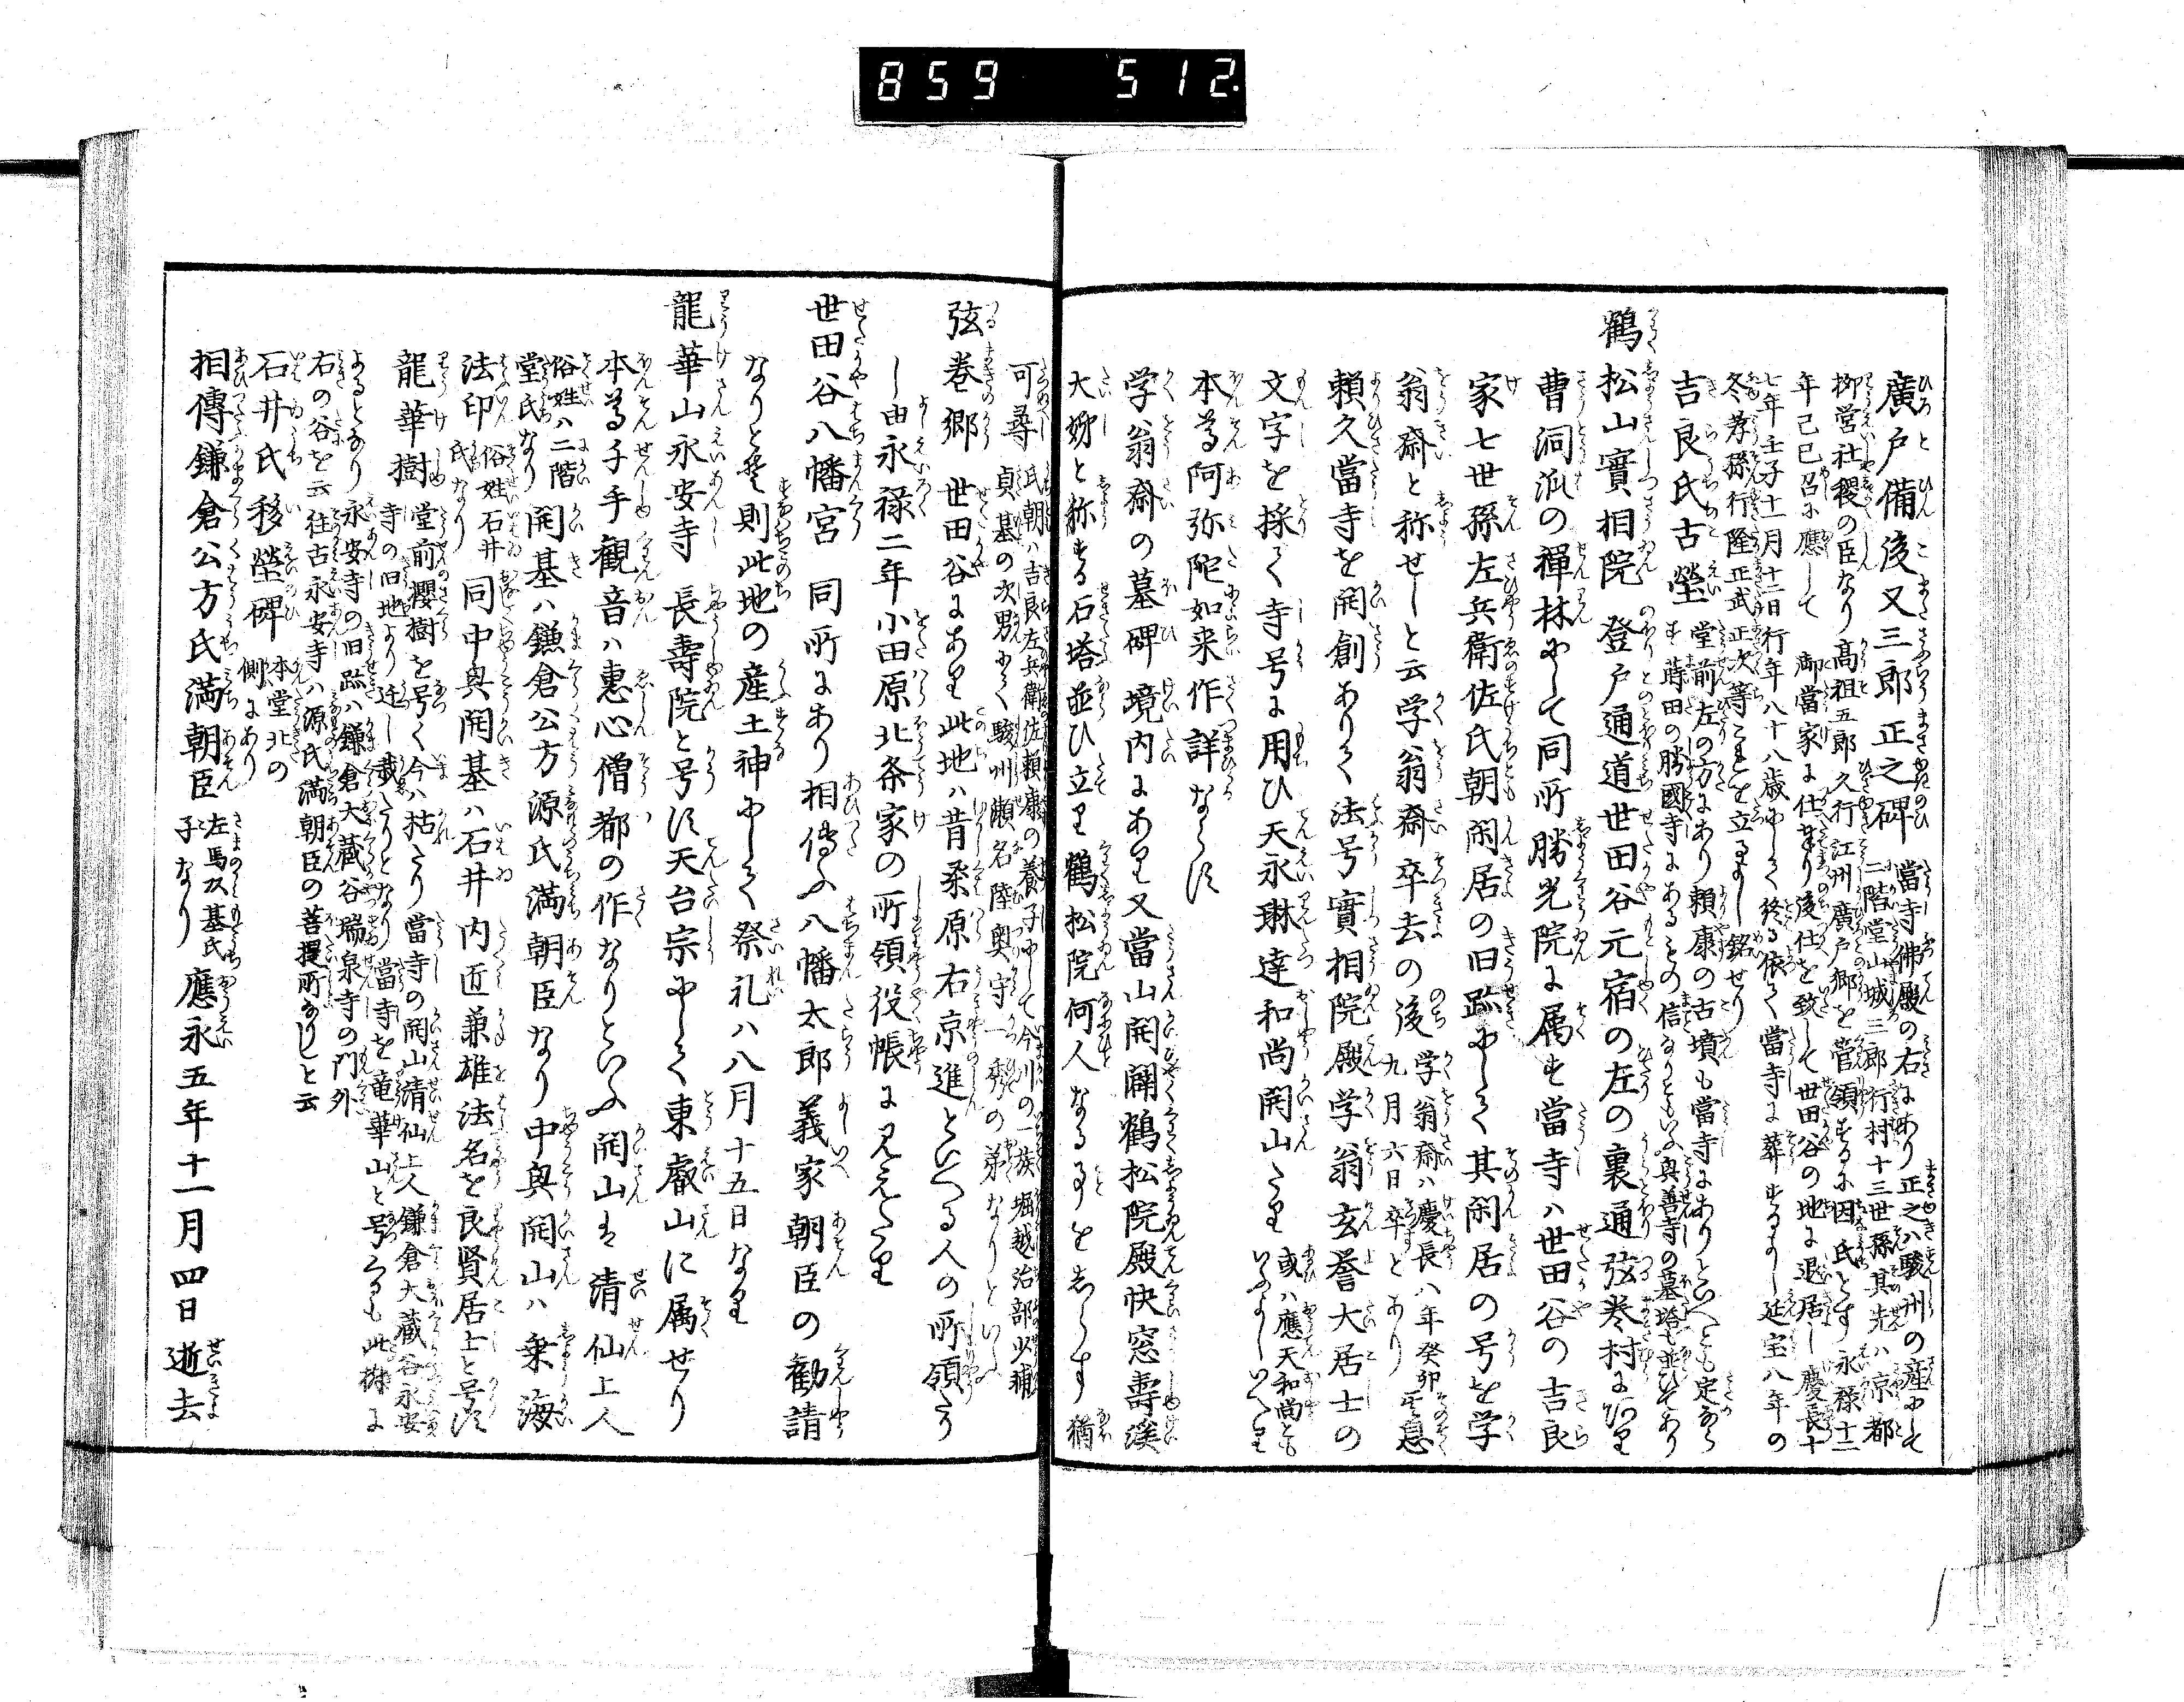 859 512.
廣戸備後又三郎正之碑 當寺佛殿の右にあり正之ハ駿州の産にして
柳営社稷の臣なり高祖五郎久行江州廣戸郷を管領するに因氏とす永禄十二
二階堂山城三郎行村十三世孫其先ハ京都
年己巳召に應して 御當家に仕奉り後仕を致して世田谷の地に退居し慶長十
七年壬子十一月十二日行年八十八歳にして終る依て當寺に葬するよし延宝八年の
冬孝孫行隆正武正次等これを立るよし銘せり
吉良氏古塋 堂前左の方にあり頼康の古墳も當寺にありといへとも定ならす
蒔田の勝國寺にあるもの信なりともいふ與善寺の墓塔も並ひてあり
鶴松山實相院 登戸通道世田谷元宿の左の裏通弦巻村にあり
曹洞派の禅林にして同所勝光院に属す當寺ハ世田谷の吉良
家七世孫左兵衛佐氏朝閑居の旧趾にして其閑居の号を学
翁齋と称せしと云学翁齋卒去の後 学翁齋ハ慶長八年癸卯九月六日卒すとあり 其息
頼久當寺を開創ありて法号實相院殿学翁玄誉大居士の
文字を採て寺号に用ひ天永琳達和尚開山たり 或ハ應天和尚ともいふよしいへり
本尊阿弥陀如来作詳ならす
学翁齋の墓碑 境内にあり又當山開闢鶴松院殿快窓壽溪
大姉と称する石塔並ひ立り鶴松院何人なる事をしらす猶
可尋 氏朝ハ吉良左兵衛佐頼康の養子にして今川の一族堀越治部少輔
貞基の次男にて駿州瀬名陸奥守一秀の弟なりといふ
弦巻郷 世田谷にあり此地ハ昔桑原右京進といへる人の所領たり
し由永禄二年小田原北条家の所領役帳に見えたり
世田谷八幡宮 同所にあり相傳ふ八幡太郎義家朝臣の勧請
なりと云則此地の産土神にして祭礼ハ八月十五日なり
龍華山永安寺 長壽院と号す天台宗にして東叡山に属せり
本尊千手観音ハ恵心僧都の作なりといふ開山を清仙上人
俗姓ハ二階堂氏なり 開基ハ鎌倉公方源氏満朝臣なり中興開山ハ乗海
法印 俗姓石井氏なり 同中興開基ハ石井内匠兼雄法名を良賢居士と号す
龍華樹 堂前櫻樹を号く今ハ枯たり當寺の開山清仙上人鎌倉大蔵谷永安
寺の旧地より迁し栽たりとなり當寺を竜華山と号るも此樹に
よるとなり永安寺の旧趾ハ鎌倉大蔵谷瑞泉寺の門外
右の谷を云往古永安寺ハ源氏満朝臣の菩提所なりしと云
石井氏移塋碑 本堂北の側にあり
相傳鎌倉公方氏満朝臣 左馬頭基氏子なり 應永五年十一月四日逝去